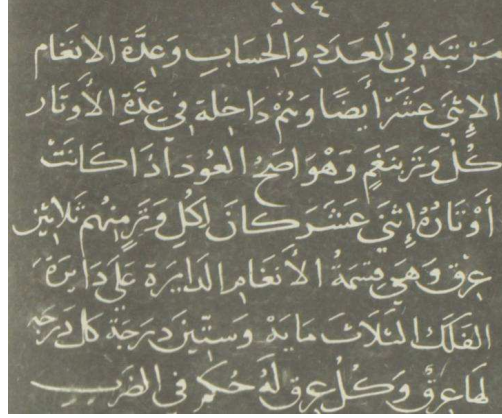 ١١٤
مرتبه في العدد والحساب وعدّة الانغام
الاثني عشر أيضًا وتم داخلة في عدّة الأوتار
كل وتر بنغم وهو اصح العود اذا كانت
أوتاره إثني عشر كان لكل وتر منهم ثلاثين
عرق وهي قسمة الأنغام الدايرة على دايرة
الفلك الثلاث مايه وستين درجة كل درجه
لها عرق وكل عرق له حكم في الضرب